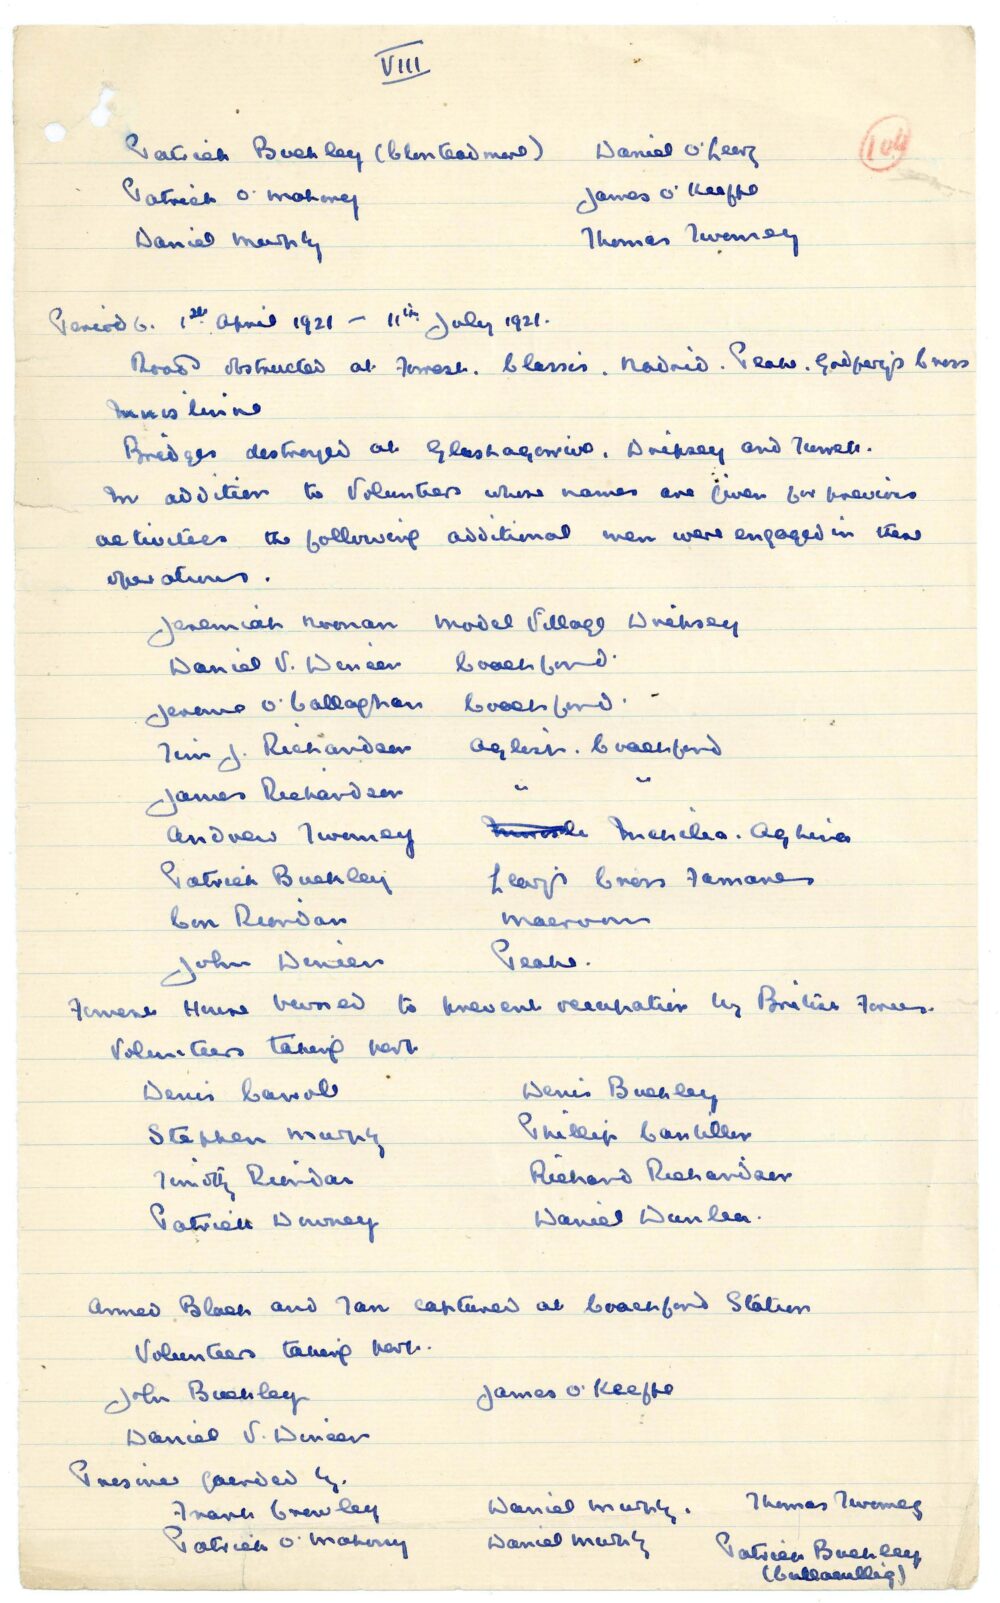 VIII
104
Patrick Buckley (Clonteadmore) Daniel O'Leary
Patrick O'Mahony James O'Keeffe
Daniel Murphy Thomas Twomey
Period 6. 1st April 1921 – 11th July 1921.
Roads obstructed at Forrest. Classis. Nadrid. Peake. Godfrey's Cross
Bridges destroyed at Glashagarrive, Dripsey and
In addition to Volunteers whose names are given for previous
activities the following additional men were engaged in these
operations.
Jeremiah Noonan Model Village Dripsey
Daniel V. Dineen Coachford.
Jerome O'Callaghan Coachford.
Tim J. Richardson Aglish. Coachford
James Richardson " "
Andrew Twomey Aghina
Patrick Buckley Leary's Cross Farnanes
Con Riordan Macroom
John Dineen Peake.
House burned to prevent occupation by British Forces.
Volunteers taking part
Denis Carroll Denis Buckley
Stephen Murphy Phillip
Timothy Riordan Richard Richardson
Patrick Downey Daniel Dunlea.
Armed Black and Tan captured at Coachford Station
Volunteers taking part.
John Buckley James O'Keeffe
Daniel V. Dineen
Prisoner guarded by.
Frank Crowley Daniel Murphy. Thomas Twomey
Patrick O'Mahony Daniel Murphy Patrick Buckley
(Cullacullig)